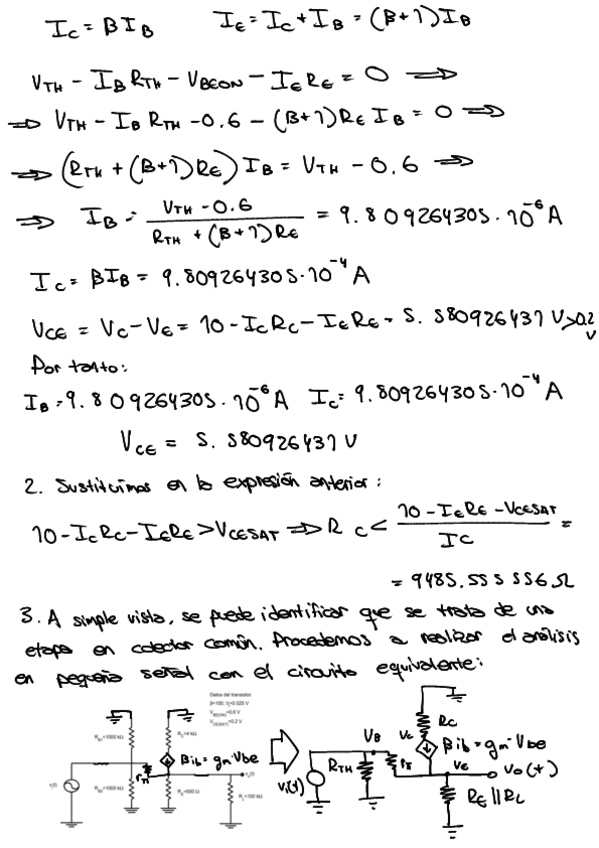 I_C = βI_B    I_E = I_C + I_B = (β+1)I_B
V_TH - I_B R_TH - V_BEON - I_E R_E = 0 ⇒
⇒ V_TH - I_B R_TH - 0.6 - (β+1)R_E I_B = 0 ⇒
⇒ (R_TH + (β+1)R_E) I_B = V_TH - 0.6 ⇒
⇒ I_B = (V_TH - 0.6) / (R_TH + (β+1)R_E) = 9.809264305·10^-6 A
I_C = βI_B = 9.809264305·10^-4 A
V_CE = V_C - V_E = 10 - I_C R_C - I_E R_E = 5.580926431 V > 0.2 V
Por tanto:
I_B = 9.809264305·10^-6 A    I_C = 9.809264305·10^-4 A
V_CE = 5.580926431 V
2. Sustituimos en la expresión anterior:
10 - I_C R_C - I_E R_E > V_CESAT ⇒ R_C < (10 - I_E R_E - V_CESAT) / I_C =
= 9485.555556 Ω
3. A simple vista, se puede identificar que se trata de una
etapa en colector común. Procedemos a realizar el análisis
en pequeña señal con el circuito equivalente:
Datos del transistor:
β=100; V_T=0.025 V
V_BE(ON)=0.6 V
V_CE(SAT)=0.2 V
R_C=4 kΩ
βib = gm·Vbe
r_π
R_L=100 kΩ
R_C
V_B
V_C
βib = gm·Vbe
R_TH
r_π
V_e
v_o(t)
v_i(t)
R_E || R_L